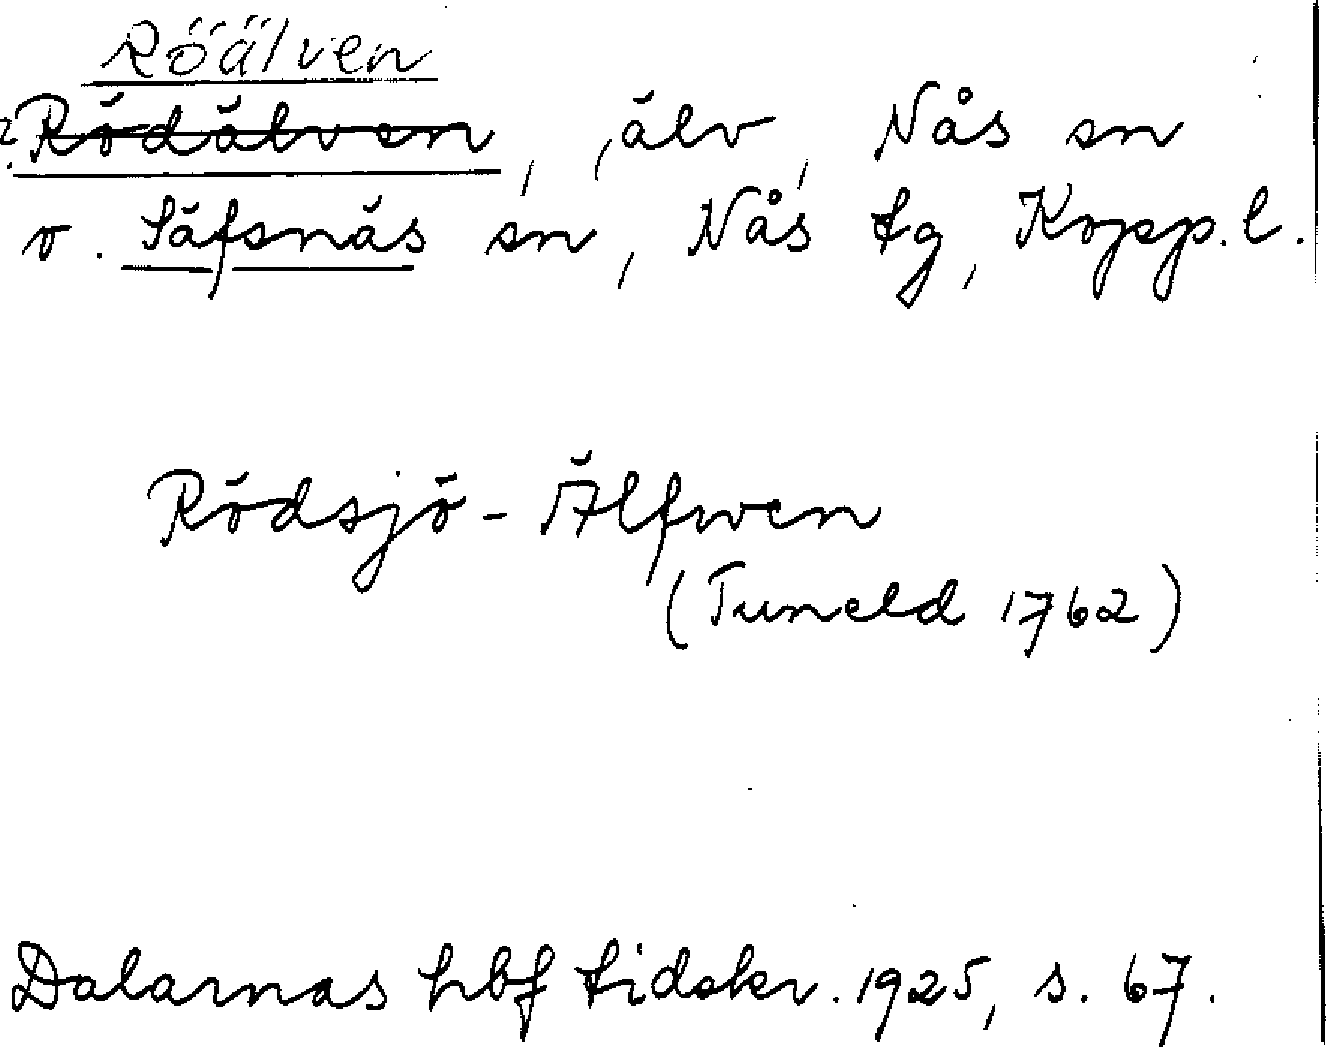 Röälven
? Rödälven, älv, Nås sn
o. Säfsnäs sn, Nås tg, Kopp. l.
Rödsjö-Älfwen
(Tuneld 1762)
Dalarnas hbf tidskr. 1925, s. 67.